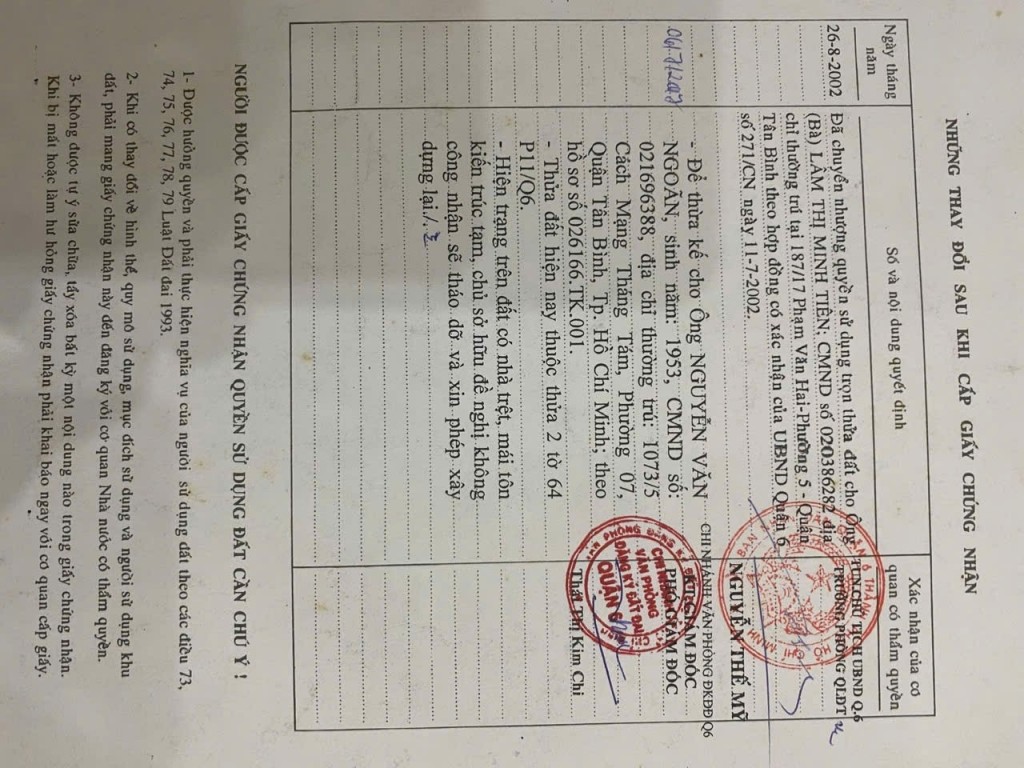 NHỮNG THAY ĐỔI SAU KHI CẤP GIẤY CHỨNG NHẬN
Ngày tháng năm
Số và nội dung quyết định
Xác nhận của cơ quan có thẩm quyền
26-8-2002
Đã chuyển nhượng quyền sử dụng trọn thửa đất cho Ông
(Bà) LÂM THỊ MINH TIÊN: CMND số 020386282 địa
chỉ thường trú tại 187/17 Phạm Văn Hai-Phường 5 - Quận
Tân Bình theo hợp đồng có xác nhận của UBND Quận 6
số 271/CN ngày 11-7-2002.
TTN.CHỦ TỊCH UBND Q.6
TRƯỞNG PHÒNG QLĐT
NGUYỄN THẾ MỸ
- Để thừa kế cho Ông NGUYỄN VĂN
NGOÃN, sinh năm: 1953, CMND số:
021696388, địa chỉ thường trú: 1073/5
Cách Mạng Tháng Tám, Phường 07,
Quận Tân Bình, Tp. Hồ Chí Minh; theo
hồ sơ số 026166.TK.001.
- Thửa đất hiện nay thuộc thửa 2 tờ 64
P11/Q6.
- Hiện trạng trên đất có nhà trệt, mái tôn
kiến trúc tạm, chủ sở hữu đề nghị không
công nhận sẽ tháo dỡ và xin phép xây
dựng lại./.
CHI NHÁNH VĂN PHÒNG ĐKĐĐ Q6
KT. GIÁM ĐỐC
PHÓ GIÁM ĐỐC
VĂN PHÒNG
ĐĂNG KÝ ĐẤT ĐAI
QUẬN 6
Thị Kim Chi
NGƯỜI ĐƯỢC CẤP GIẤY CHỨNG NHẬN QUYỀN SỬ DỤNG ĐẤT CẦN CHÚ Ý !
1- Được hưởng quyền và phải thực hiện nghĩa vụ của người sử dụng đất theo các điều 73,
74, 75, 76, 77, 78, 79 Luật Đất đai 1993.
2- Khi có thay đổi về hình thể, quy mô sử dụng, mục đích sử dụng và người sử dụng khu
đất, phải mang giấy chứng nhận này đến đăng ký với cơ quan Nhà nước có thẩm quyền.
3- Không được tự ý sửa chữa, tẩy xóa bất kỳ một nội dung nào trong giấy chứng nhận.
Khi bị mất hoặc làm hư hỏng giấy chứng nhận phải khai báo ngay với cơ quan cấp giấy.